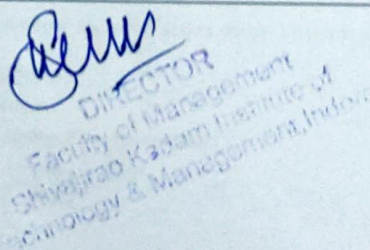 DIRECTOR
Faculty of Management
Shivajirao Kadam Institute of
echnology & Management, Indore